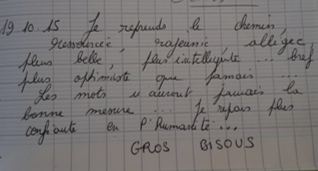 19.10.15 Je reprends le chemin,
Ressourcée, rajeunie allégée,
plus belle, plus intelligente ... bref
plus optimiste que jamais ...
Les mots n'auront jamais la
bonne mesure ... Je repars plus
confiante en l'Humanité ...
GROS BISOUS